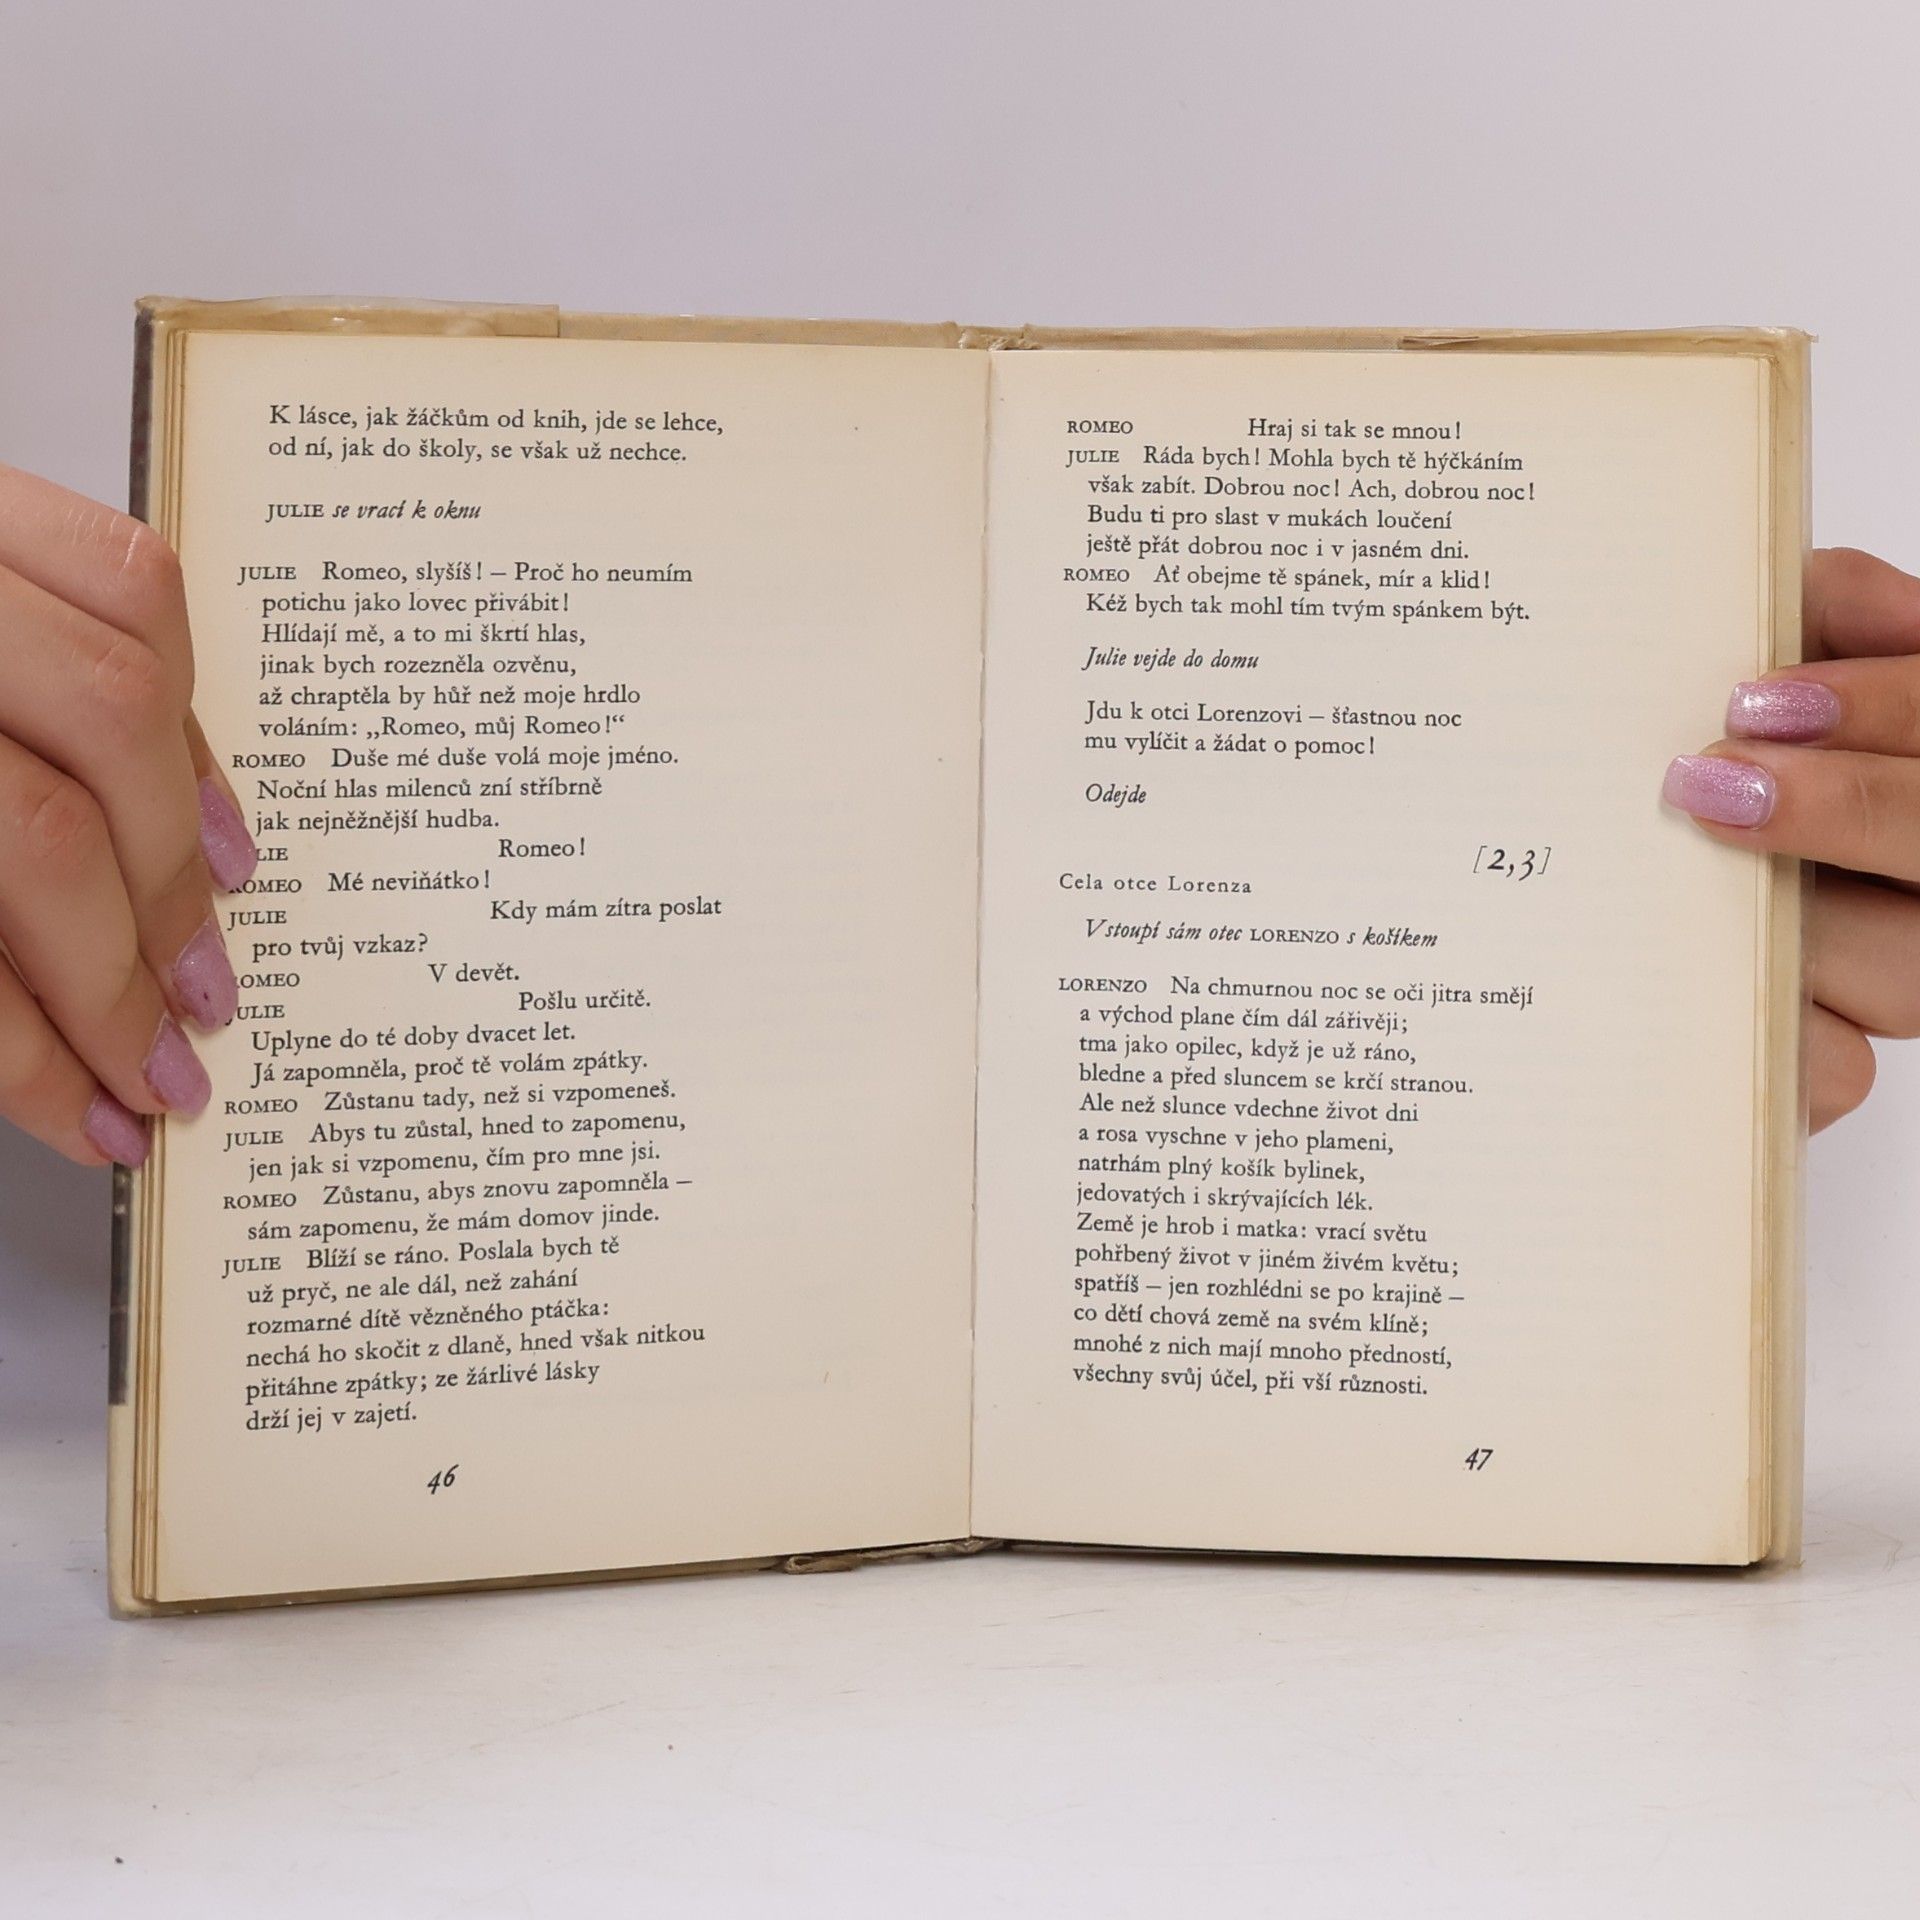 K lásce, jak žáčkům od knih, jde se lehce,
od ní, jak do školy, se však už nechce.
JULIE se vrací k oknu
JULIE Romeo, slyšíš! – Proč ho neumím
potichu jako lovec přivábit!
Hlídají mě, a to mi škrtí hlas,
jinak bych rozezněla ozvěnu,
až chraptěla by hůř než moje hrdlo
voláním: „Romeo, můj Romeo!“
ROMEO Duše mé duše volá moje jméno.
Noční hlas milenců zní stříbrně
jak nejněžnější hudba.
LIE Romeo!
ROMEO Mé neviňátko!
JULIE Kdy mám zítra poslat
pro tvůj vzkaz?
ROMEO V devět.
JULIE Pošlu určitě.
Uplyne do té doby dvacet let.
Já zapomněla, proč tě volám zpátky.
ROMEO Zůstanu tady, než si vzpomeneš.
JULIE Abys tu zůstal, hned to zapomenu,
jen jak si vzpomenu, čím pro mne jsi.
ROMEO Zůstanu, abys znovu zapomněla –
sám zapomenu, že mám domov jinde.
JULIE Blíží se ráno. Poslala bych tě
už pryč, ne ale dál, než zahání
rozmarné dítě vězněného ptáčka:
nechá ho skočit z dlaně, hned však nitkou
přitáhne zpátky; ze žárlivé lásky
drží jej v zajetí.
46
ROMEO Hraj si tak se mnou!
JULIE Ráda bych! Mohla bych tě hýčkáním
však zabít. Dobrou noc! Ach, dobrou noc!
Budu ti pro slast v mukách loučení
ještě přát dobrou noc i v jasném dni.
ROMEO Ať obejme tě spánek, mír a klid!
Kéž bych tak mohl tím tvým spánkem být.
Julie vejde do domu
Jdu k otci Lorenzovi – šťastnou noc
mu vylíčit a žádat o pomoc!
Odejde
[2,3]
Cela otce Lorenza
Vstoupí sám otec LORENZO s košíkem
LORENZO Na chmurnou noc se oči jitra smějí
a východ plane čím dál zářivěji;
tma jako opilec, když je už ráno,
bledne a před sluncem se krčí stranou.
Ale než slunce vdechne život dni
a rosa vyschne v jeho plameni,
natrhám plný košík bylinek,
jedovatých i skrývajících lék.
Země je hrob i matka: vrací světu
pohřbený život v jiném živém květu;
spatříš – jen rozhlédni se po krajině –
co dětí chová země na svém klíně;
mnohé z nich mají mnoho předností,
všechny svůj účel, při vší různosti.
47